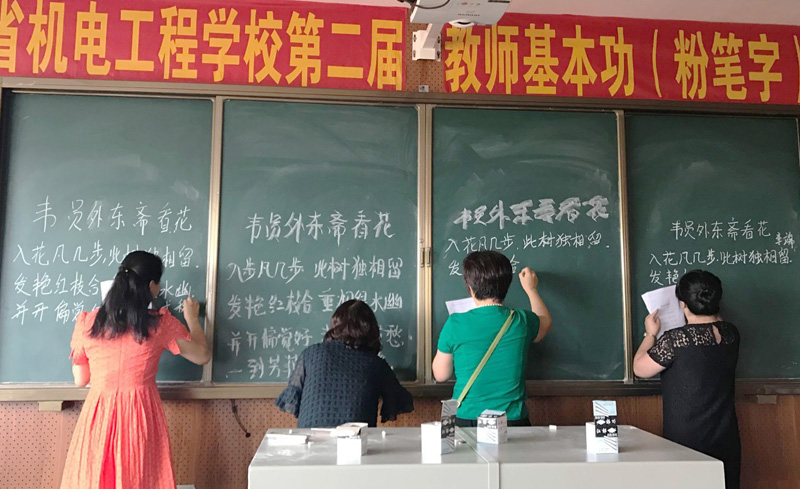 省机电工程学校第二届 教师基本功（粉笔字）
韦员外东斋看花
入花凡几步,此树 相留.
发艳红枝合 水幽
并开偏觉
韦员外东斋看花
入步凡几步 此树独相留
发艳红枝合 垂 水幽
并开偏觉好 愁
一到芳
韦员外东斋看花
入花凡几步,此树独相留.
发 合
韦员外东斋看花
李端
入花凡几步,此树独相留.
发艳